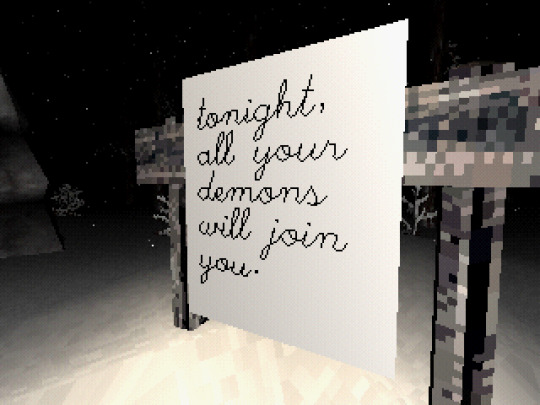 tonight,
all your
demons
will join
you.